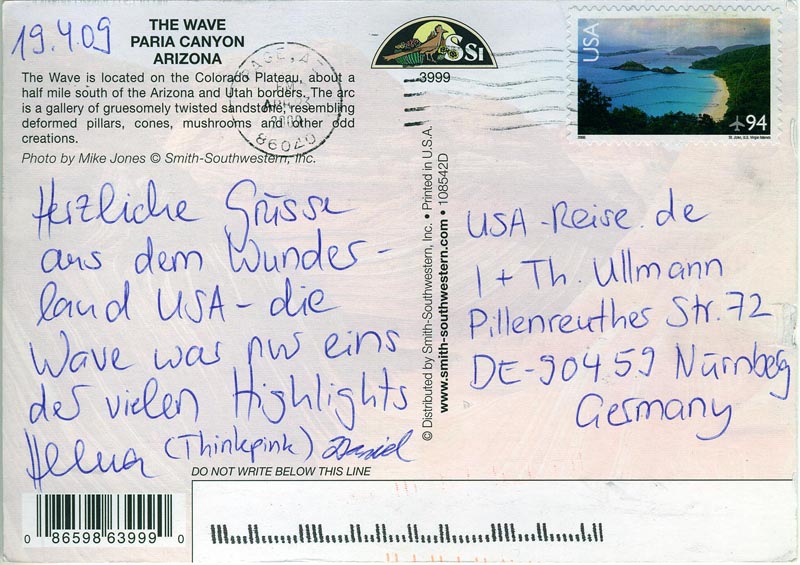 19.4.09
THE WAVE
PARIA CANYON
ARIZONA
The Wave is located on the Colorado Plateau, about a
half mile south of the Arizona and Utah borders. The arc
is a gallery of gruesomely twisted sandstone, resembling
deformed pillars, cones, mushrooms and other odd
creations.
Photo by Mike Jones © Smith-Southwestern, Inc.
Herzliche Grüsse
aus dem Wunder-
land USA - die
Wave war nur eins
der vielen Highlights
(Thinkpink) Daniel
DO NOT WRITE BELOW THIS LINE
0 86598 63999 0
SSI
3999
© Distributed by Smith-Southwestern, Inc. • Printed in U.S.A.
www.smith-southwestern.com • 108542D
PAGE, AZ
PM
2009
86040
USA
94
2008
St. John, U.S. Virgin Islands
USA-Reise.de
I + Th. Ullmann
Pillenreuther Str. 72
DE-90459 Nürnberg
Germany